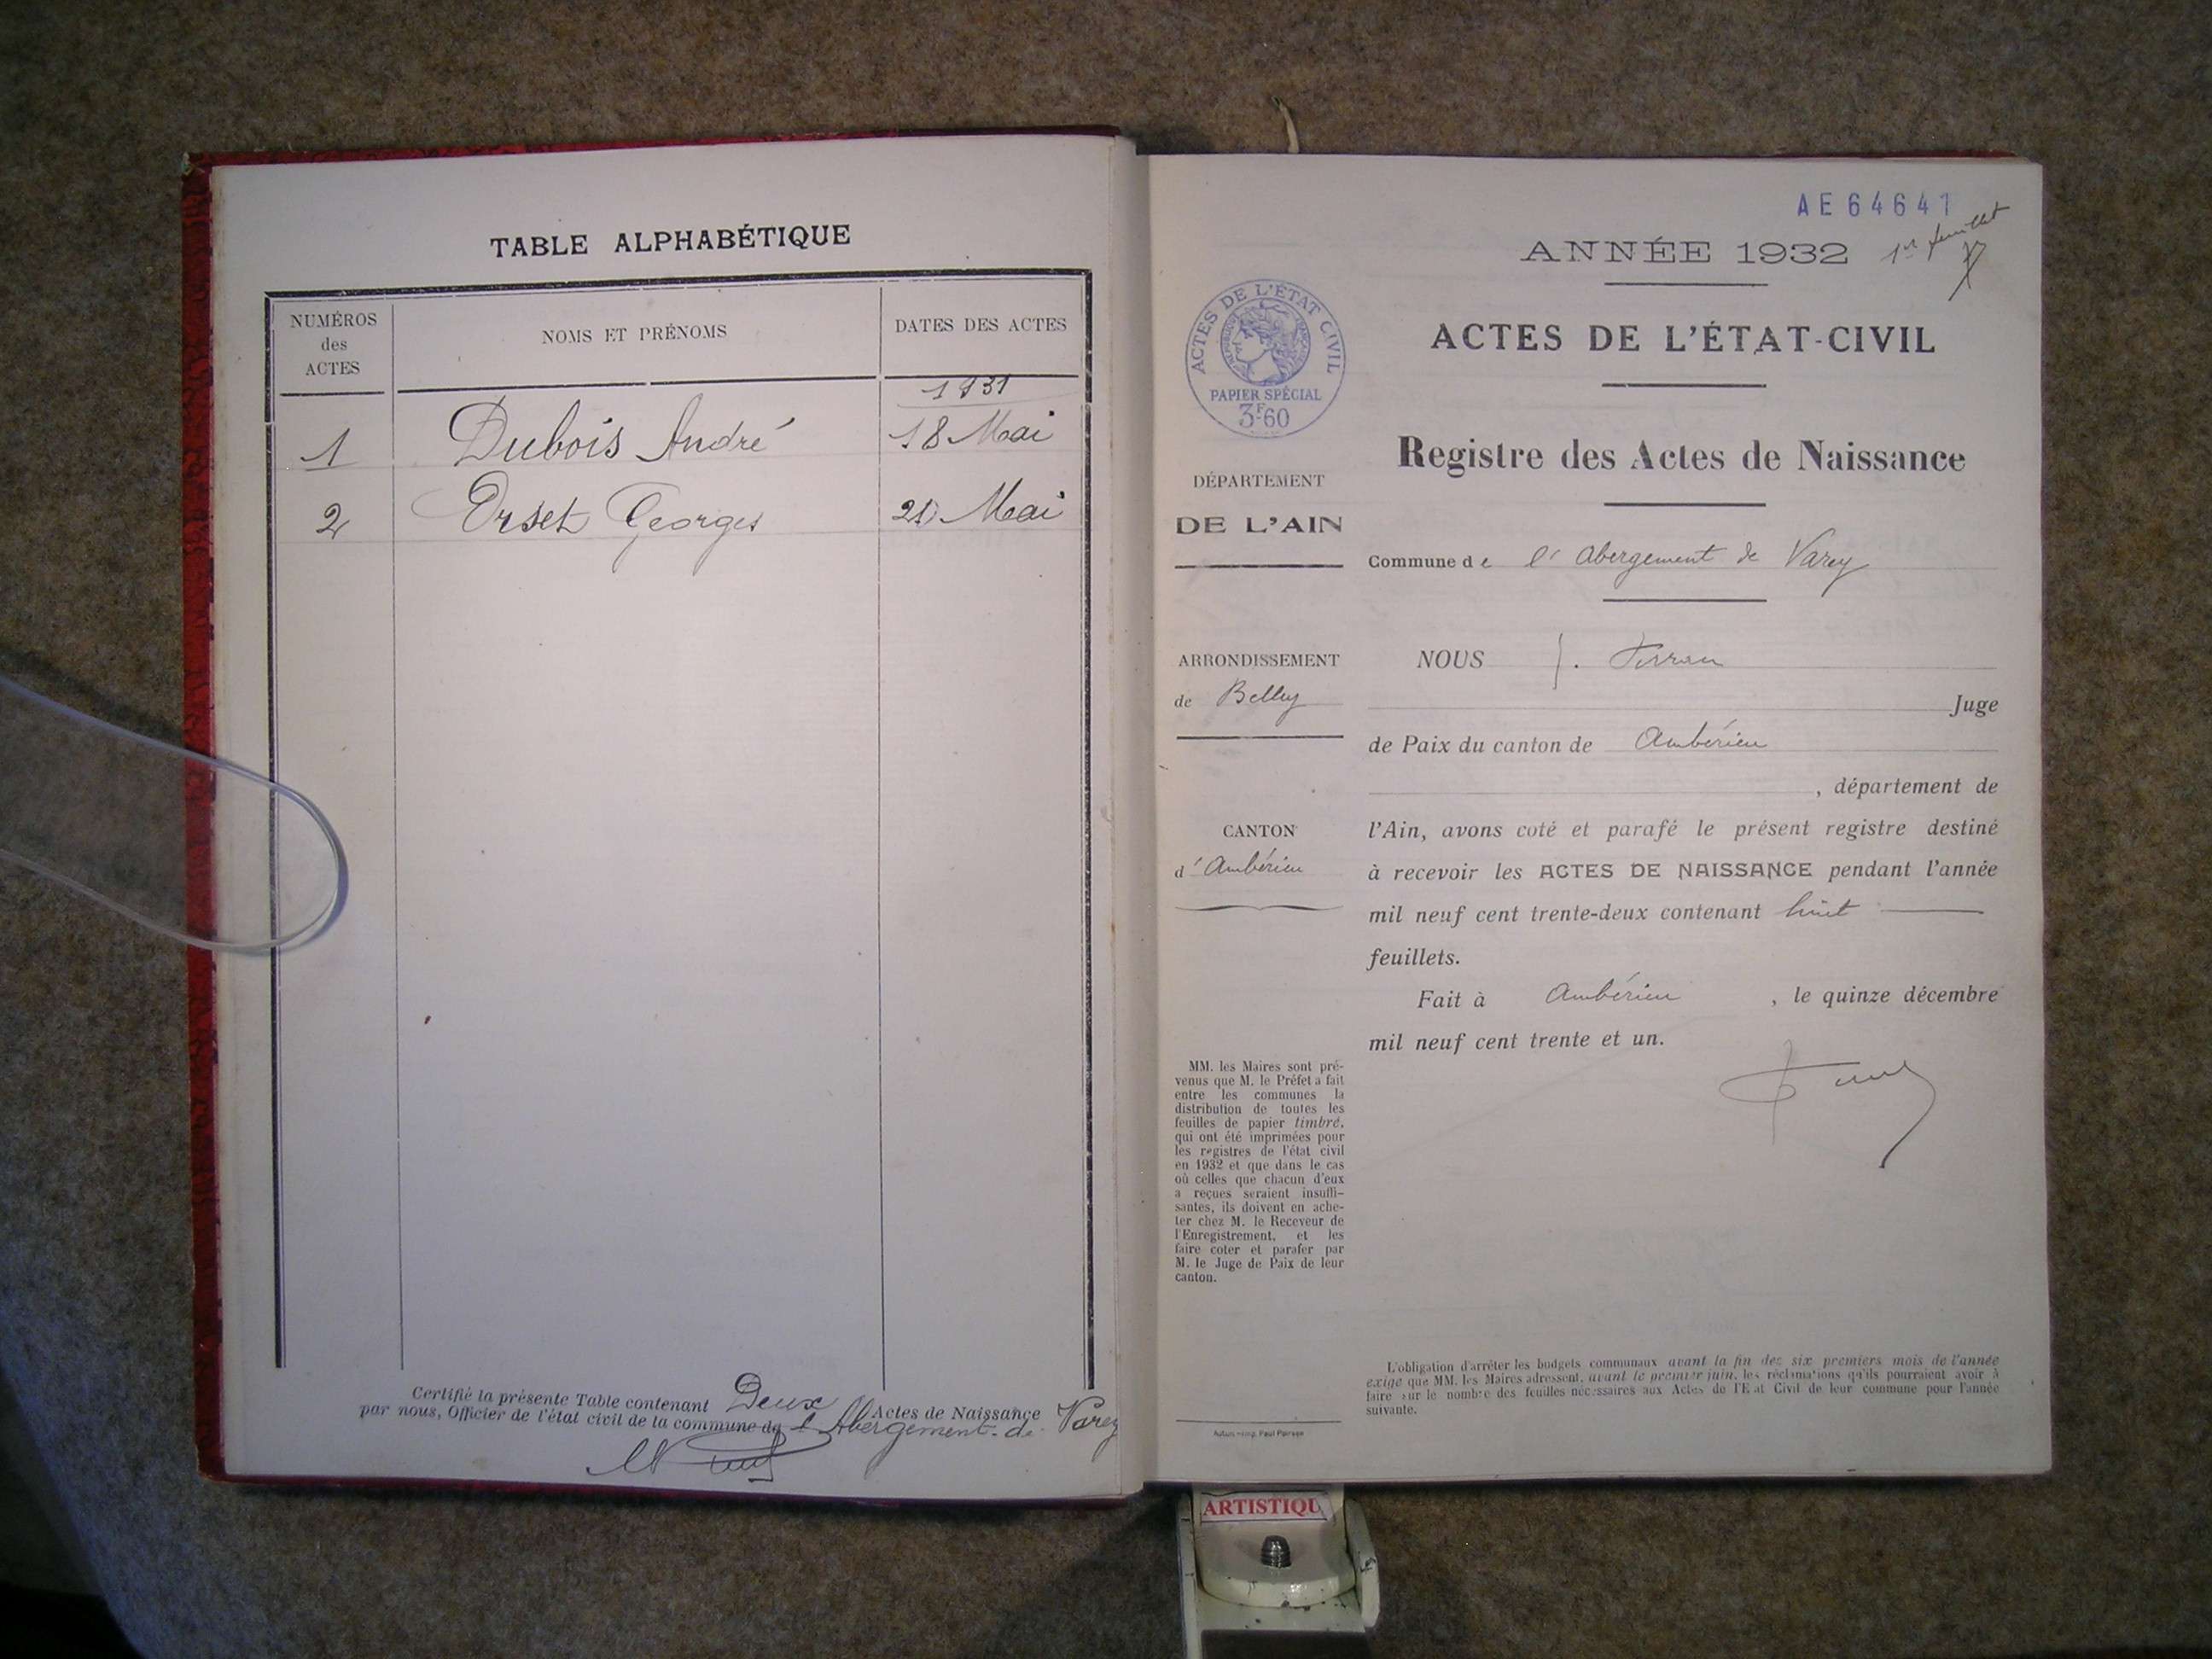 TABLE ALPHABÉTIQUE
NUMÉROS
des
ACTES
NOMS ET PRÉNOMS
DATES DES ACTES
1931
1 Dubois André 18 Mai
2 Orset Georges 21 Mai
Certifié la présente Table contenant Deux Actes de Naissance
par nous, Officier de l'état civil de la commune de l'Abergement-de Varey
AE64641
ANNÉE 1932
1er feuillet
ACTES DE L'ÉTAT-CIVIL
ACTES DE L'ÉTAT CIVIL
PAPIER SPÉCIAL
3F60
Registre des Actes de Naissance
DÉPARTEMENT
DE L'AIN
Commune de l'Abergement de Varey
ARRONDISSEMENT
de Belley
CANTON
d'Ambérieu
NOUS J.
Juge
de Paix du canton de Ambérieu
, département de
l'Ain, avons coté et parafé le présent registre destiné
à recevoir les ACTES DE NAISSANCE pendant l'année
mil neuf cent trente-deux contenant huit
feuillets.
Fait à Ambérieu , le quinze décembre
mil neuf cent trente et un.
MM. les Maires sont pré-
venus que M. le Préfet a fait
entre les communes la
distribution de toutes les
feuilles de papier timbré,
qui ont été imprimées pour
les registres de l'état civil
en 1932 et que dans le cas
où celles que chacun d'eux
a reçues seraient insuffi-
santes, ils doivent en ache-
ter chez M. le Receveur de
l'Enregistrement, et les
faire coter et parafer par
M. le Juge de Paix de leur
canton.
L'obligation d'arrêter les budgets communaux avant la fin des six premiers mois de l'année
exige que MM. les Maires adressent, avant le premier juin, les réclamations qu'ils pourraient avoir à
faire sur le nombre des feuilles nécessaires aux Actes de l'Etat Civil de leur commune pour l'année
suivante.
ARTISTIQU